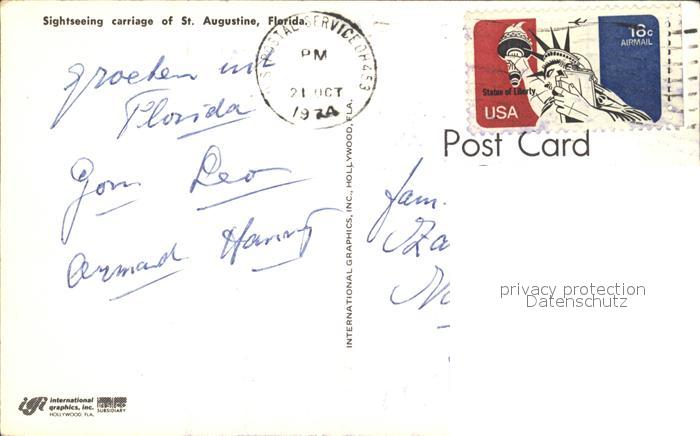 Sightseeing carriage of St. Augustine, Florida.
groeten uit
Florida
Gom Leo
Armand Hanny
POSTAL SERVICE
PM
21 OCT
1974
18c
AIRMAIL
Statue of Liberty
USA
Post Card
fam.
Za
INTERNATIONAL GRAPHICS, INC., HOLLYWOOD, FLA.
privacy protection
Datenschutz
igi international
graphics, inc.
HOLLYWOOD, FLA.
SUBSIDIARY